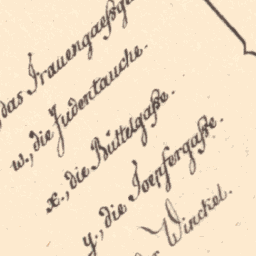 das Frauengaeßg
w., die Judentauche.
x., die Büttelgaße.
y., die Toepfergaße.
Winckel.